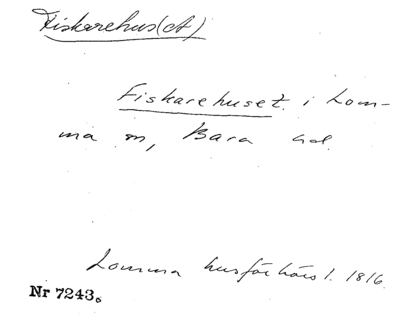 Fiskarehus(et)
Fiskarehuset i Lom-
ma sn, Bara hd.
Lomma husförhörsl. 1816.
Nr 7243.